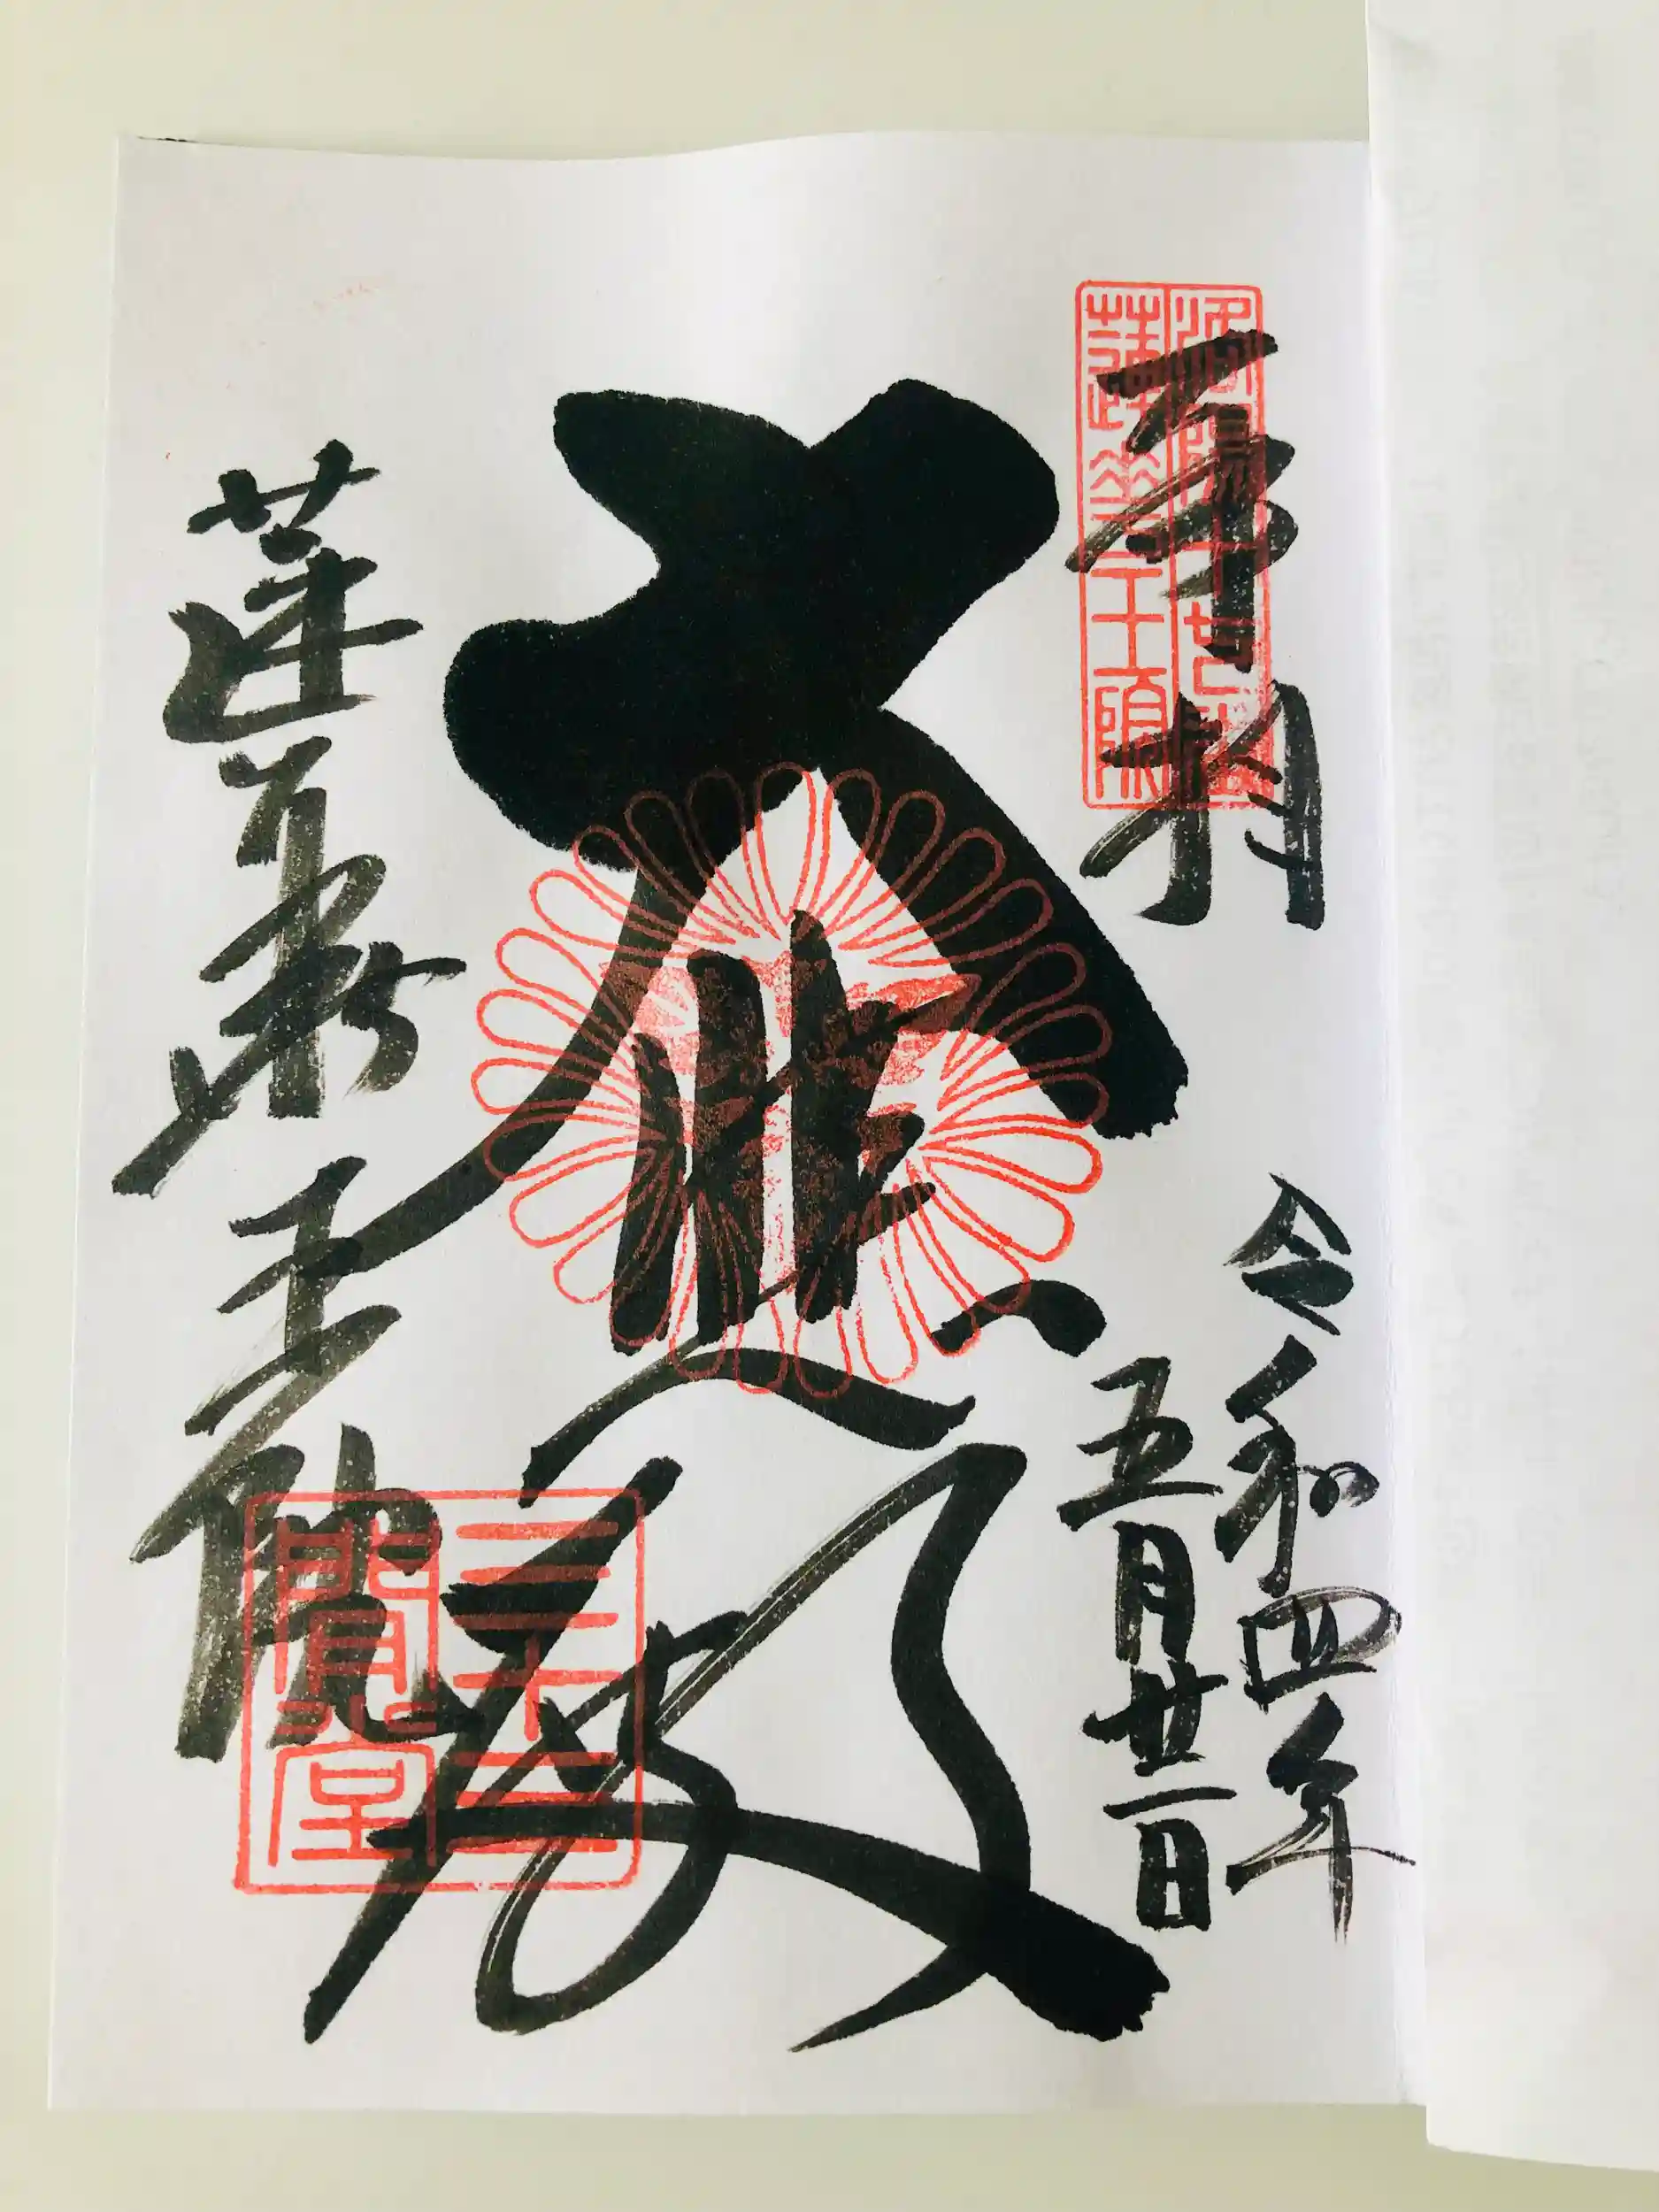 奉拝
令和四年
五月廿二日
大悲殿
蓮華王院
蓮華王院
三十三
間堂